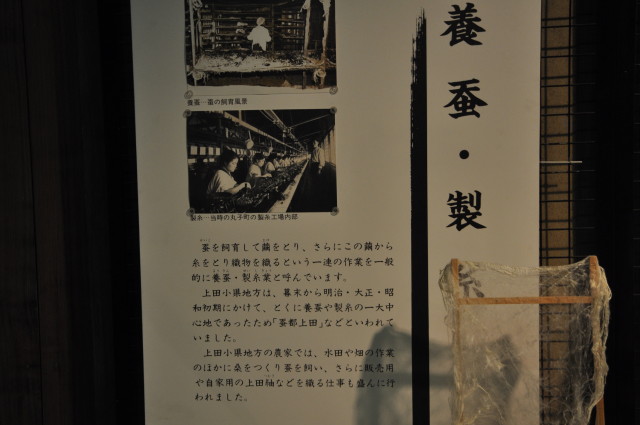 養蚕・製
養蚕…蚕の飼育風景
製糸…当時の丸子町の製糸工場内部
蚕を飼育して繭をとり、さらにこの繭から
糸をとり織物を織るという一連の作業を一般
的に養蚕・製糸業と呼んでいます。
上田小県地方は、幕末から明治・大正・昭
和初期にかけて、とくに養蚕や製糸の一大中
心地であったため「蚕都上田」などといわれて
いました。
上田小県地方の農家では、水田や畑の作業
のほかに桑をつくり蚕を飼い、さらに販売用
や自家用の上田紬などを織る仕事も盛んに行
われました。